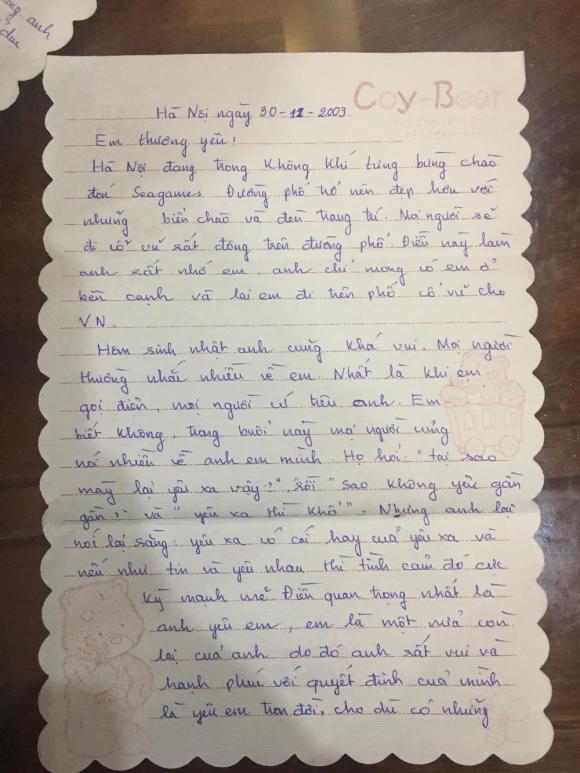 ng anh
đau
Coy-Bear
Hà Nội ngày 30-11-2003
Em thương yêu!
Hà Nội đang trong không khí tưng bừng chào
đón Seagames. Đường phố trở nên đẹp hơn với
những biển chào và đèn trang trí. Mọi người sẽ
đi cổ vũ rất đông trên đường phố. Điều này làm
anh rất nhớ em, anh chỉ mong có em ở
bên cạnh và lai em đi trên phố cổ vũ cho
VN.
Hôm sinh nhật anh cũng khá vui. Mọi người
thường nhắc nhiều về em. Nhất là khi em
gọi điện, mọi người cứ trêu anh. Em
biết không, trong buổi này mọi người cũng
nói nhiều về anh em mình. Họ hỏi: "tại sao
mày lại yêu xa vậy?", rồi "sao không yêu gần
gần?" và "yêu xa thì khổ". Nhưng anh lại
nói lại rằng: yêu xa có cái hay của yêu xa và
nếu như tin và yêu nhau thì tình cảm đó cực
kỳ mạnh mẽ. Điều quan trọng nhất là
anh yêu em, em là một nửa còn
lại của anh do đó anh rất vui và
hạnh phúc với quyết định của mình
là yêu em trọn đời, cho dù có những